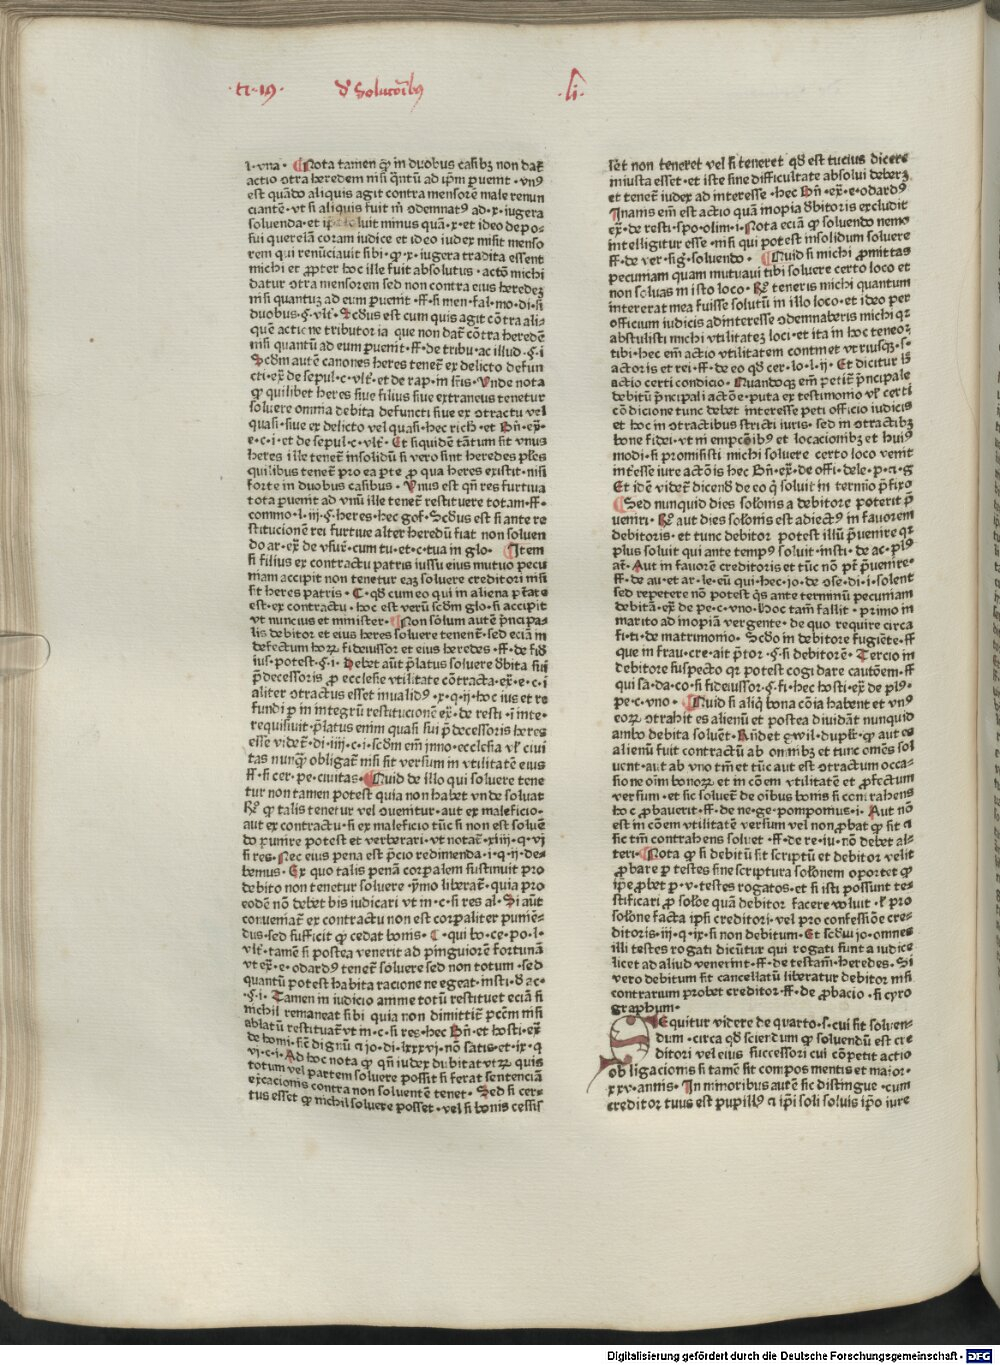 ·ti·19· de Solucōibus ·li·
l·vna· Nota tamen qƺ in duobus casibꝫ non daẗ
actio ɔtra heredem nisi q̄ntū ad ip̄m ꝑuenit·vn9
est quādo aliquis agit contra mensorē male renun
ciantē·vt si aliquis fuit m̄ ɔdemnat9 ad·x·iugera
soluenda·et luit minus quā·x·et ideo depo-
sui querelā coram iudice et ideo iudex misit menso
rem qui renūciauit sibi·qƺ·x·iugera tradita essent
michi et ꝓpter hoc ille fuit absolutus·actō michi
datur ɔtra mensorem sed non contra eius heredeꝫ
nisi quantuꝫ ad eum ꝑuenit·ff·si men·fal·mo·di·si
duobus·§·vlt̄·Scd̄us est cum quis agit cōtra ali-
quē actiōne tributoria que non dat̄ cōtra heredē
nisi quantū ad eum ꝑuenit·ff·de tribu·ac illud·§·i
Scd̄m autē canones heres tenet̄ ex delicto defun
cti·ex̄ de sepul·c·vlt̄·et de rap·in lr̄is·Vnde nota
qƺ quilibet heres siue filius siue extraneus tenetur
soluere omnia debita defuncti siue ex ɔtractu vel
quasi·siue ex delicto vel quasi·hec rich̄·et Bn̄·ex̄·
e·c·i·et de sepul·c·vlt̄·Et siquidē tātum sit vnus
heres ille tenet̄ insolidū si vero sint heredes pl̄es
quilibus tenet̄ pro ea pte ꝓ qua heres existit·nisi
forte in duobus casibus·Vnus est qn̄ res furtiua
tota ꝑuenit ad vnū ille tenet̄ restituere totam·ff·
commo·l·iij·§·heres·hec gof·Scd̄us est si ante re
stitucionē rei furtiue alter heredū fiat non soluen
do ar·ex̄ de vsur̄·cum tu·et·c·tua in glo· Item
si filius ex contractu patris iussu eius mutuo pecu
niam accipit non tenetur eaꝫ soluere creditori nisi
sit heres patris·C·qd̄ cum eo qui in aliena p̄tate
est·ex contractu·hoc est verū scd̄m glo·si accipit
vt nuncius et minister· Non solum autē p̄ncipa-
lis debitor et eius heres soluere tenent̄·sed eciā in
defectum hoꝝ fideiussor et eius heredes·ff·de fid̄
ius·potest·§·i·Debet aūt p̄latus soluere d̄bita sui
p̄decessoris ꝓ ecclesie vtilitate cōtracta·ex̄·e·c·i
aliter ɔtractus esset inualid9·x·q·ij·hoc ius et re
fundi ꝑ in integrū restitucionē ex̄·de resti·ī inte·
requisiuit·p̄latus enim quasi sui p̄decessoris heres
esse videt̄·di·iiij·c·i·scd̄m em̄ jnno·ecclesia vl̄ ciui
tas nunqƺ obligat̄ nisi sit versum in vtilitatē eius
ff·si cer·pe·ciuitas· Quid de illo qui soluere tene
tur non tamen potest quia non habet vnde soluat
Rͦ qƺ talis tenetur vel ɔuenitur·aut ex maleficio·
aut ex contractu·si ex maleficio tūc si non est soluē
do punire potest et verberari·vt notat̄·xiiij·q·vj
si res·Nec eius pena est p̄cio redimenda·i·q·ij·de-
bemus·Ex quo talis penā corꝑalem sustinuit pro
debito non tenetur soluere·ymo liberat̄·quia pro
eodē nō debet bis iudicari vt in·c·si res al·Si aūt
conueniat̄ ex contractu non est corꝑaliter puniē-
dus·sed sufficit qƺ cedat bonis·C·qui bo·ce·po·l·
vlt̄·tamē si postea venerit ad pinguiorē fortunā
vt ex̄·e·odard9 tenet̄ soluere sed non totum·sed
quantū potest habita racione ne egeat·insti·d̄ ac·
·§·i·Tamen in iudicio anime totū restituet eciā si
nichil remaneat sibi quia non dimittit̄ pcc̄m nisi
ablatū restituat̄ vt in·c·si res·hec Bn̄·et hosti·ex̄
de homi·sic̄ dignū ꝛ jo·di·lxxxvj·nō satis·et·ix·q
vj·c·i·Ad hoc nota qƺ qn̄ iudex dubitat vtꝝ quis
totum vel partem soluere possit si ferat sentenciā
excacionis contra non soluentē tenet·Sed si cer-
tus esset qƺ nichil soluere posset·vel si bonis cessis
set non teneret vel si teneret qd̄ est tucius dicere
iniusta esset·et iste sine difficultate absolui debeꝝ
et tenet̄ iudex ad interesse·hec Bn̄·ex̄·e·odard9
Inanis em̄ est actio quā inopia d̄bitoris excludit
ex̄·de resti·spo·olim·i·Nota eciā qƺ soluendo nemo
intelligitur esse·nisi qui potest insolidum soluere
ff·de ver·sig·soluendo· Quid si michi ꝓmittas
pecuniam quam mutuaui tibi soluere certo loco et
non soluas in isto loco·Rͦ teneris michi quantum
intererat mea fuisse solutū in illo loco·et ideo per
officium iudicis adinteresse ɔdemnaberis michi qꝛ
abstulisti michi vtilitateꝫ loci·et ita in hoc teneoꝛ
tibi·hec em̄ actio vtilitatem continet vtriusqꝫ·s·
actoris et rei·ff·de eo qd̄ cer·lo·l·ij·Et dicitur ïs
actio certi condicio·Nuandocꝫ em̄ petit̄ p̄ncipale
debitū p̄ncipali actōe·puta ex testimonio vl̄ certi
cōdicione tunc debet interesse peti officio iudicis
et hoc in ɔtractibus stricti iuris·sed in ɔtractibꝫ
bone fidei·vt in empcōibus et locacionibꝫ et hui9
modi·si promisisti michi soluere certo loco venit
inte̅sse iure actōis hec Bn̄·ex̄·de offi·dele·p·ꝛ·g
Et idē videt̄ dicend̄ de eo q̄ soluit in termio p̄fixo
Sed nunquid dies solōnis a debitore poterit p̄
ueniri·Rͦ aut dies solōnis est adiect9 in fauorem
debitoris·et tunc debitor potest illū p̄uenire qꝛ
plus soluit qui ante temp9 soluit·insti·de ac·pl9
at̄·Aut in fauorē creditoris et tūc nō pt̄ p̄uenire·
ff·de au·et ar·le·eū qui·hec·jo·de ɔse·di·i·solent
sed repetere nō potest q̄s ante terminū pecuniam
debitā·ex̄ de pe·c·vno·hoc tam̄ fallit·primo in
marito ad inopiā vergente·de quo require circa
fi·ti·de matrimonio·Scd̄o in debitore fugiēte·ff
que in frau·cre·ait p̄tor·§·si debitorē·Tercio in
debitore suspecto qꝛ potest cogi dare cautōem·ff
qui sa·da·co·si fideiussor·§·fi·hec hosti·ex̄ de pl9·
pe·c·vno· Quid si aliq̄ bona cōia habent et vn9
eoꝝ ɔtrahit es alienū et postea diuidāt nunquid
ambo debita soluēt·Rn̄det gwil·duplr̄·qƺ aut es
alienū fuit contractū ab omnibꝫ et tunc omēs sol
uent·aut ab vno tm̄ et tūc aut est ɔtractum occa-
sione oīm bonoꝝ et in cōem vtilitatē et ꝓfectum
versum·et sic soluēt de oībus bonis si contrahens
hoc ꝓbauerit·ff·de ne·ge·pomponius·i·Aut nō
est in cōem vtilitatē versum vel non ꝓbat qƺ sit ꝛ
sic tm̄ contrahens soluet·ff·de re·iu·nō debet al-
teri· Nota qƺ si debitū sit scriptū et debitor velit
ꝓbare ꝑ testes sine scriptura solōnem oportet qƺ
ip̄e ꝓbet ꝑ·v·testes rogatos·et si isti possunt te-
stificari ꝑ solōe quā debitor facere voluit·vl̄ pro
solōne facta ipsi creditori·vel pro confessiōe cre-
ditoris·iiij·q·ix·si non debitum·Et scd̄m jo·omnes
illi testes rogati dicūtur qui rogati sunt a iudice
licet ad aliud venerint·ff·de testam̄·heredes·Si
vero debitum sit cancellatū liberatur debitor nisi
contrarium ꝓbet creditor·ff·de ꝓbacio·si cyro
graphum·
SEquitur videre de quarto·s·cui sit soluen-
dum·circa qd̄ sciendum qƺ soluendū est cre
ditori vel eius successori cui cōpetit actio
obligacionis si tamē sit compos mentis et maior·
xxv·annis·In minoribus autē sic distingue·cum
creditor tuus est pupill9 ꝛ ip̄i soli soluis ip̄o iure
Digitalisierung gefördert durch die Deutsche Forschungsgemeinschaft - DFG